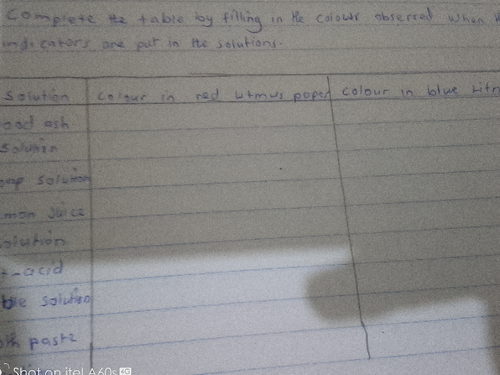 Complete the table by filling in the colours observed when
indicators are put in the solutions.
Solution Colour in red litmus paper colour in blue Litm
ood ash
solution
oap solution
mon juice
solution
t-acid
solution
oth paste
Shot on itel A60s 4G